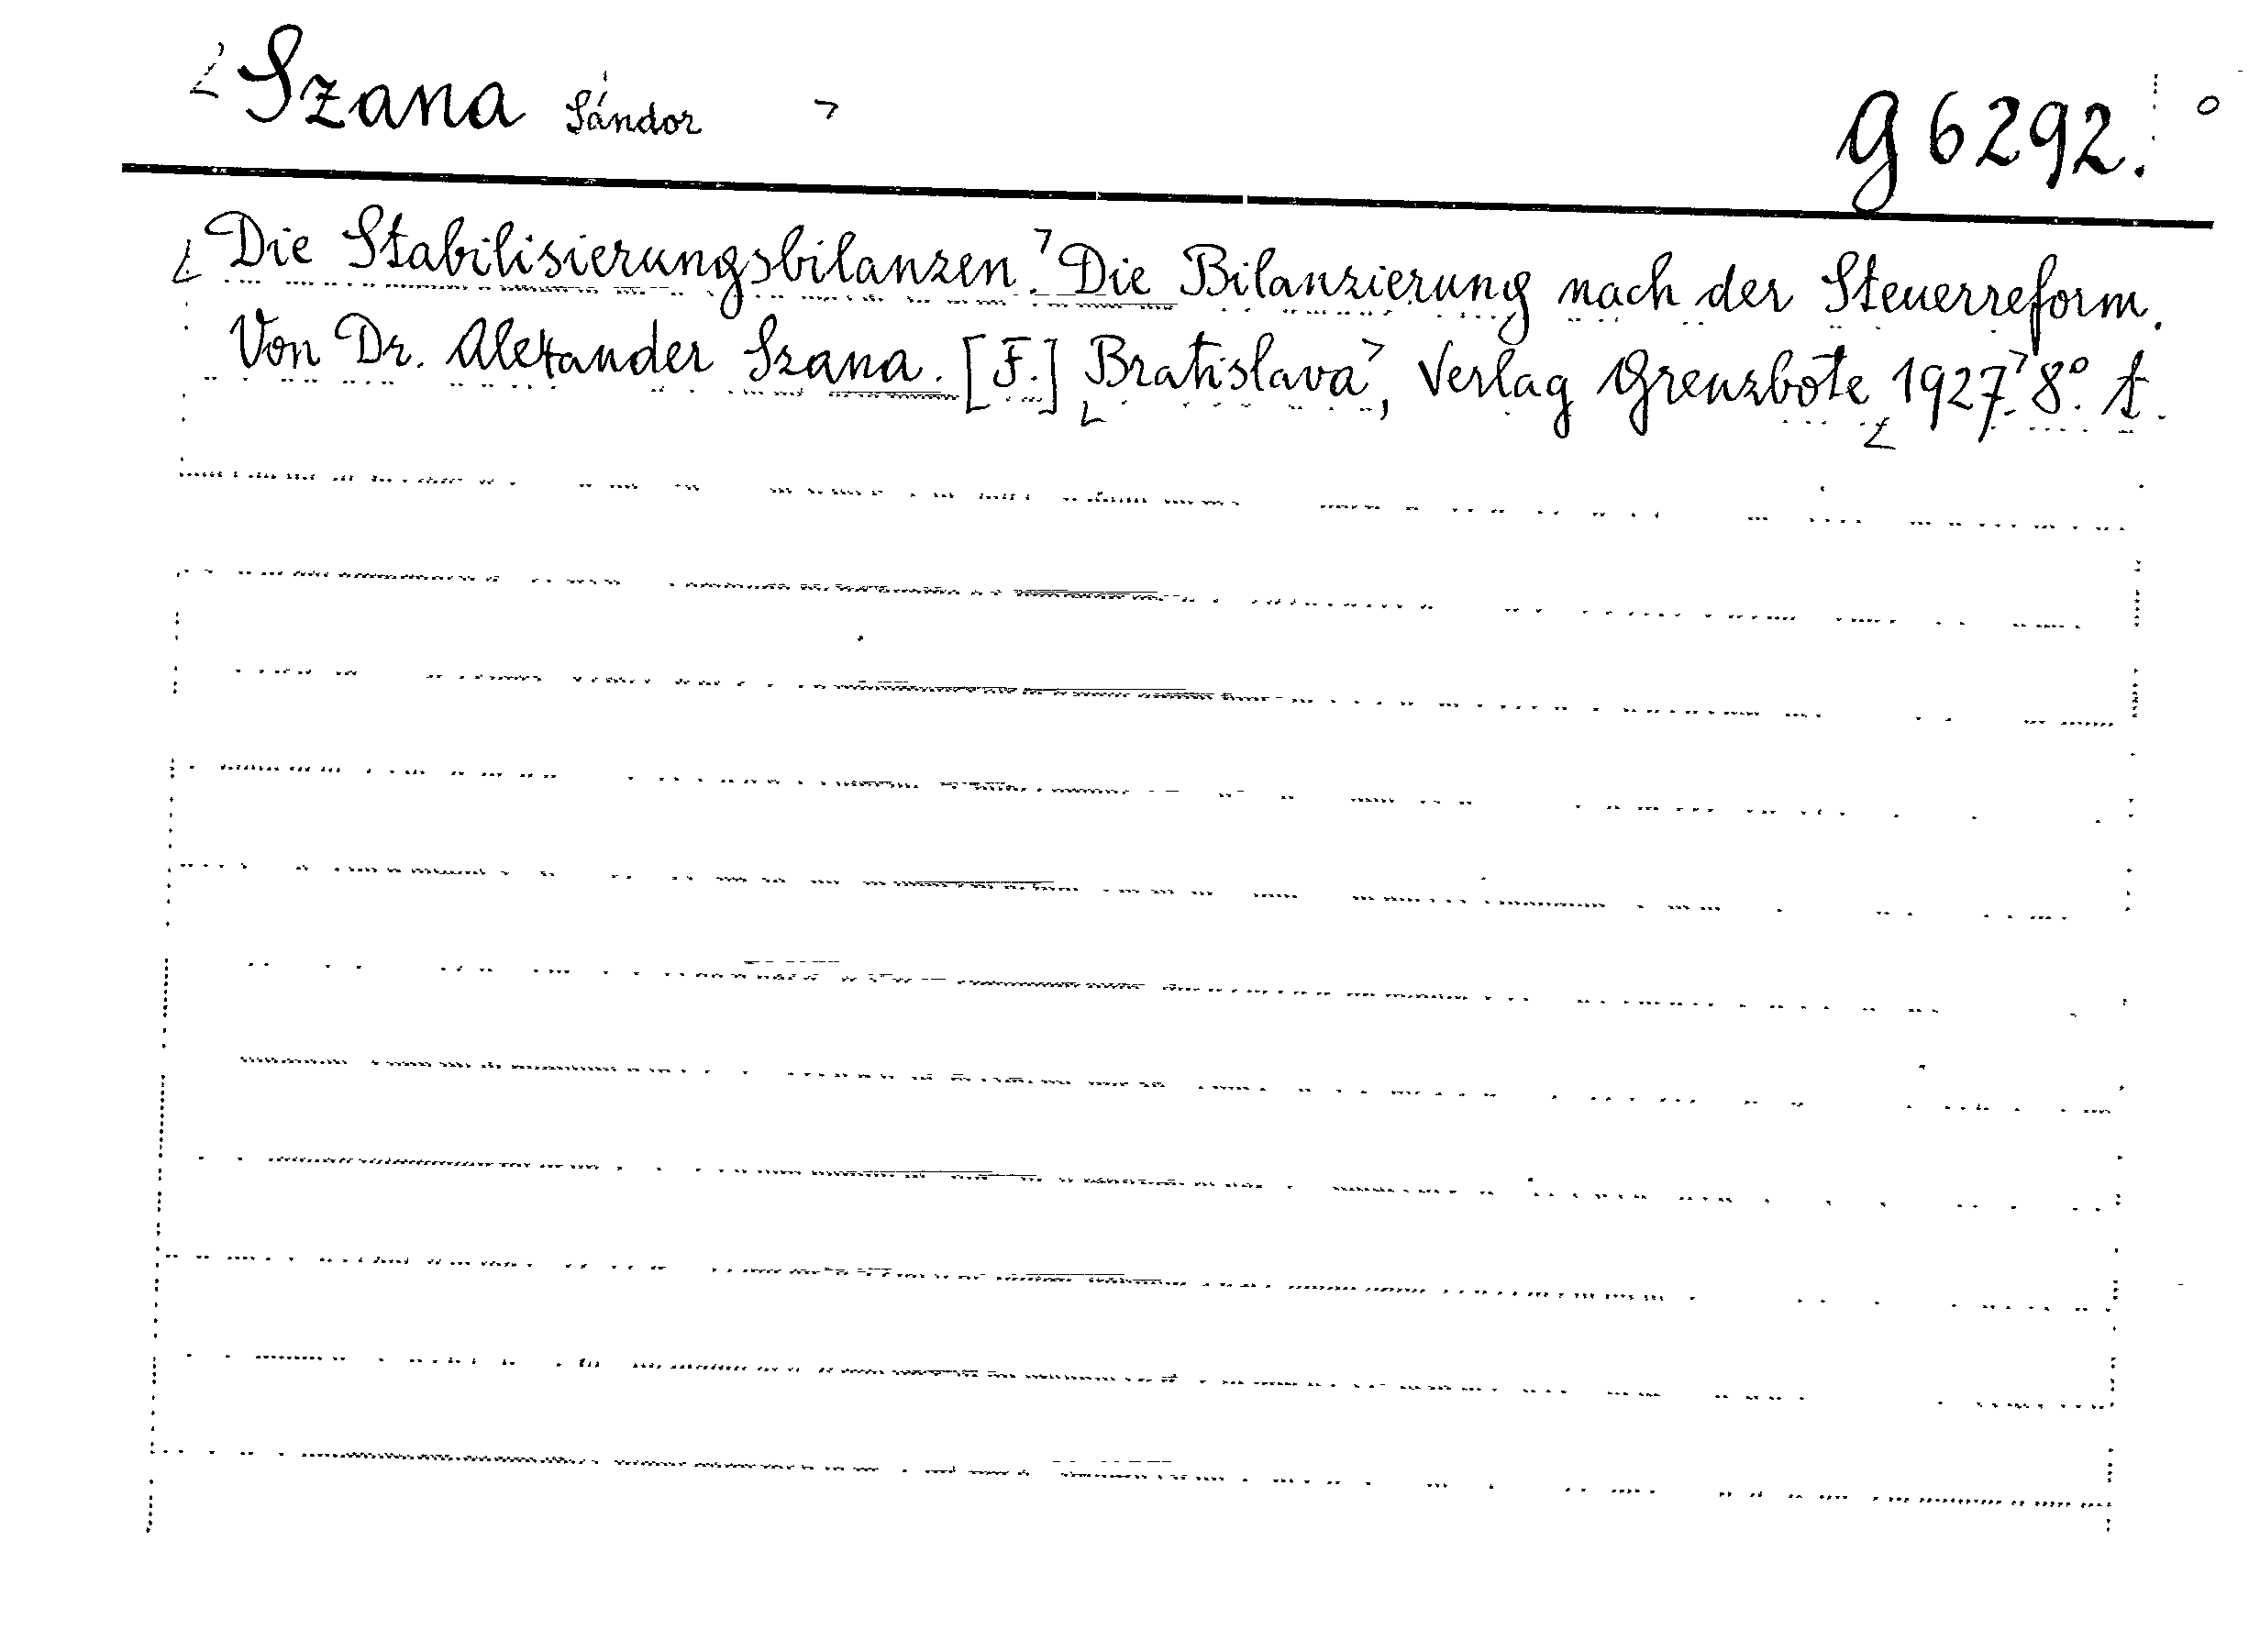 Szana Sándor G 6292.
Die Stabilisierungsbilanzen. Die Bilanzierung nach der Steuerreform.
Von Dr. Alexander Szana. [F.] Bratislava, Verlag Grenzbote 1927. 8° t.